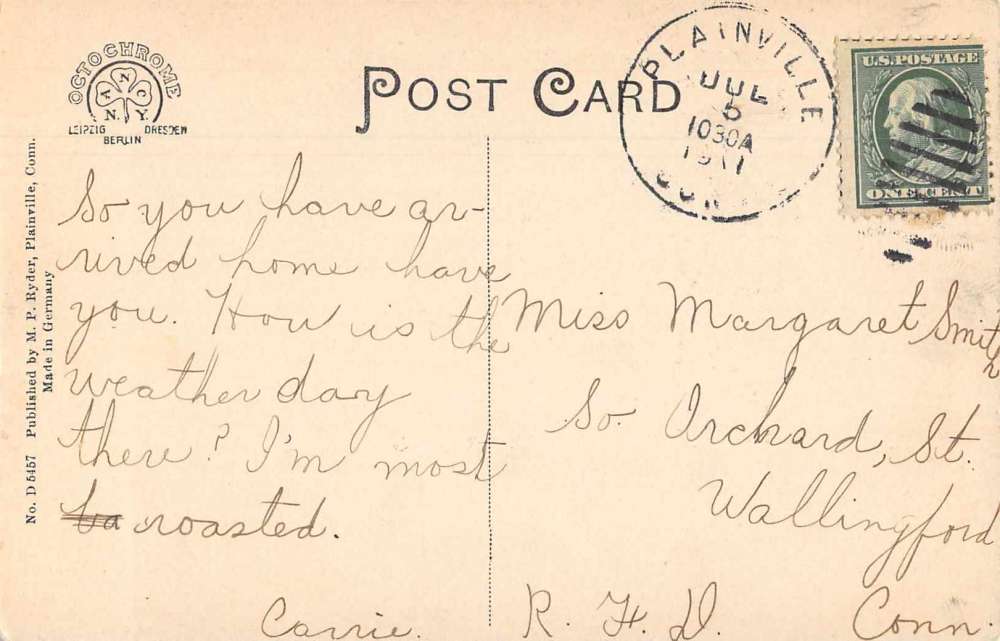 OCTOCHROME
A N C
N.Y.
LEIPZIG DRESDEN
BERLIN
POST CARD
PLAINVILLE
JUL
5
1030A
1911
CONN
U.S. POSTAGE
ONE CENT
No. D 5457 Published by M. P. Ryder, Plainville, Conn.
Made in Germany
So you have ar-
rived home have
you. How is the
weather day
there? I'm most
ba roasted.
Carrie.
Miss Margaret Smith
So. Orchard, St.
Wallingford
R. F. D. Conn.